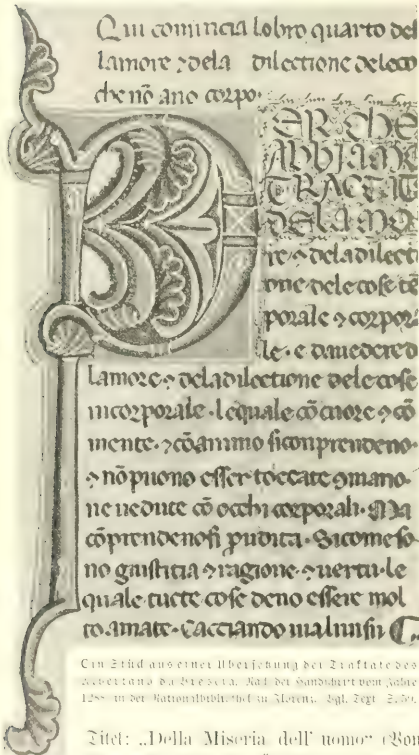 Qui comincia lobro quarto del
lamore ⁊ dela dilectione deleco
che nõ ano corpo·
ER CHE
ABBIAME
TRACTAT
DELAMO
re ⁊ deladilecti
one delecose tē
porale ⁊ corpor
le· e dauedered
lamore ⁊ deladilectione delecose
incorporale· lequale cõ cuore ⁊ cõ
mente· ⁊ cõ animo siconprendeno·
⁊ nõ puono esser toccate 9mano·
ne uedute cõ occhi corporali· Ma
cõprendenosi ꝑudita· Sicomeso
no giustitia ⁊ ragione ⁊ uertu· le
quale tucte cose deno essere mol
to amate· Cacciando
Ein Stück aus einer Übersetzung der Traktate des
Albertano da Brescia. Nach der Handschrift vom Jahre
in der Nationalbibliothek zu Florenz. Vgl. Text
Titel: „Della Miseria dell' uomo“ (Von